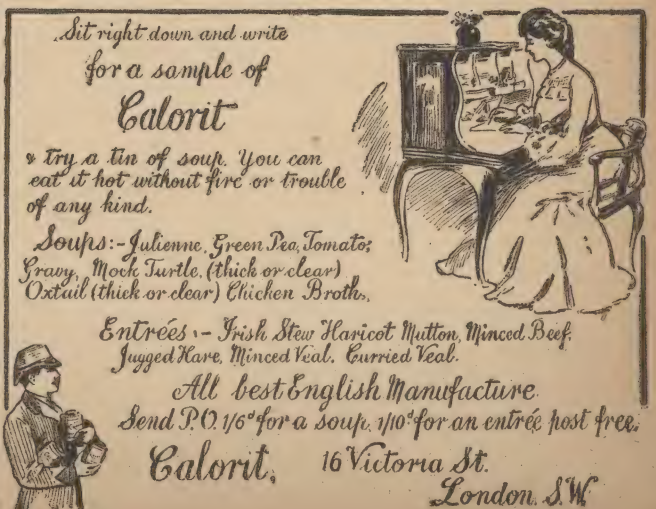 Sit right down and write
for a sample of
Calorit
& try a tin of soup. You can
eat it hot without fire or trouble
of any kind.
Soups:- Julienne, Green Pea, Tomato;
Gravy, Mock Turtle, (thick or clear)
Oxtail (thick or clear) Chicken Broth,
Entrées :- Irish Stew Haricot Mutton, Minced Beef,
Jugged Hare, Minced Veal. Curried Veal.
All best English Manufacture
Send P.O. 1/6d for a soup, 1/10d for an entrée post free.
Calorit, 16 Victoria St.
London. S.W.